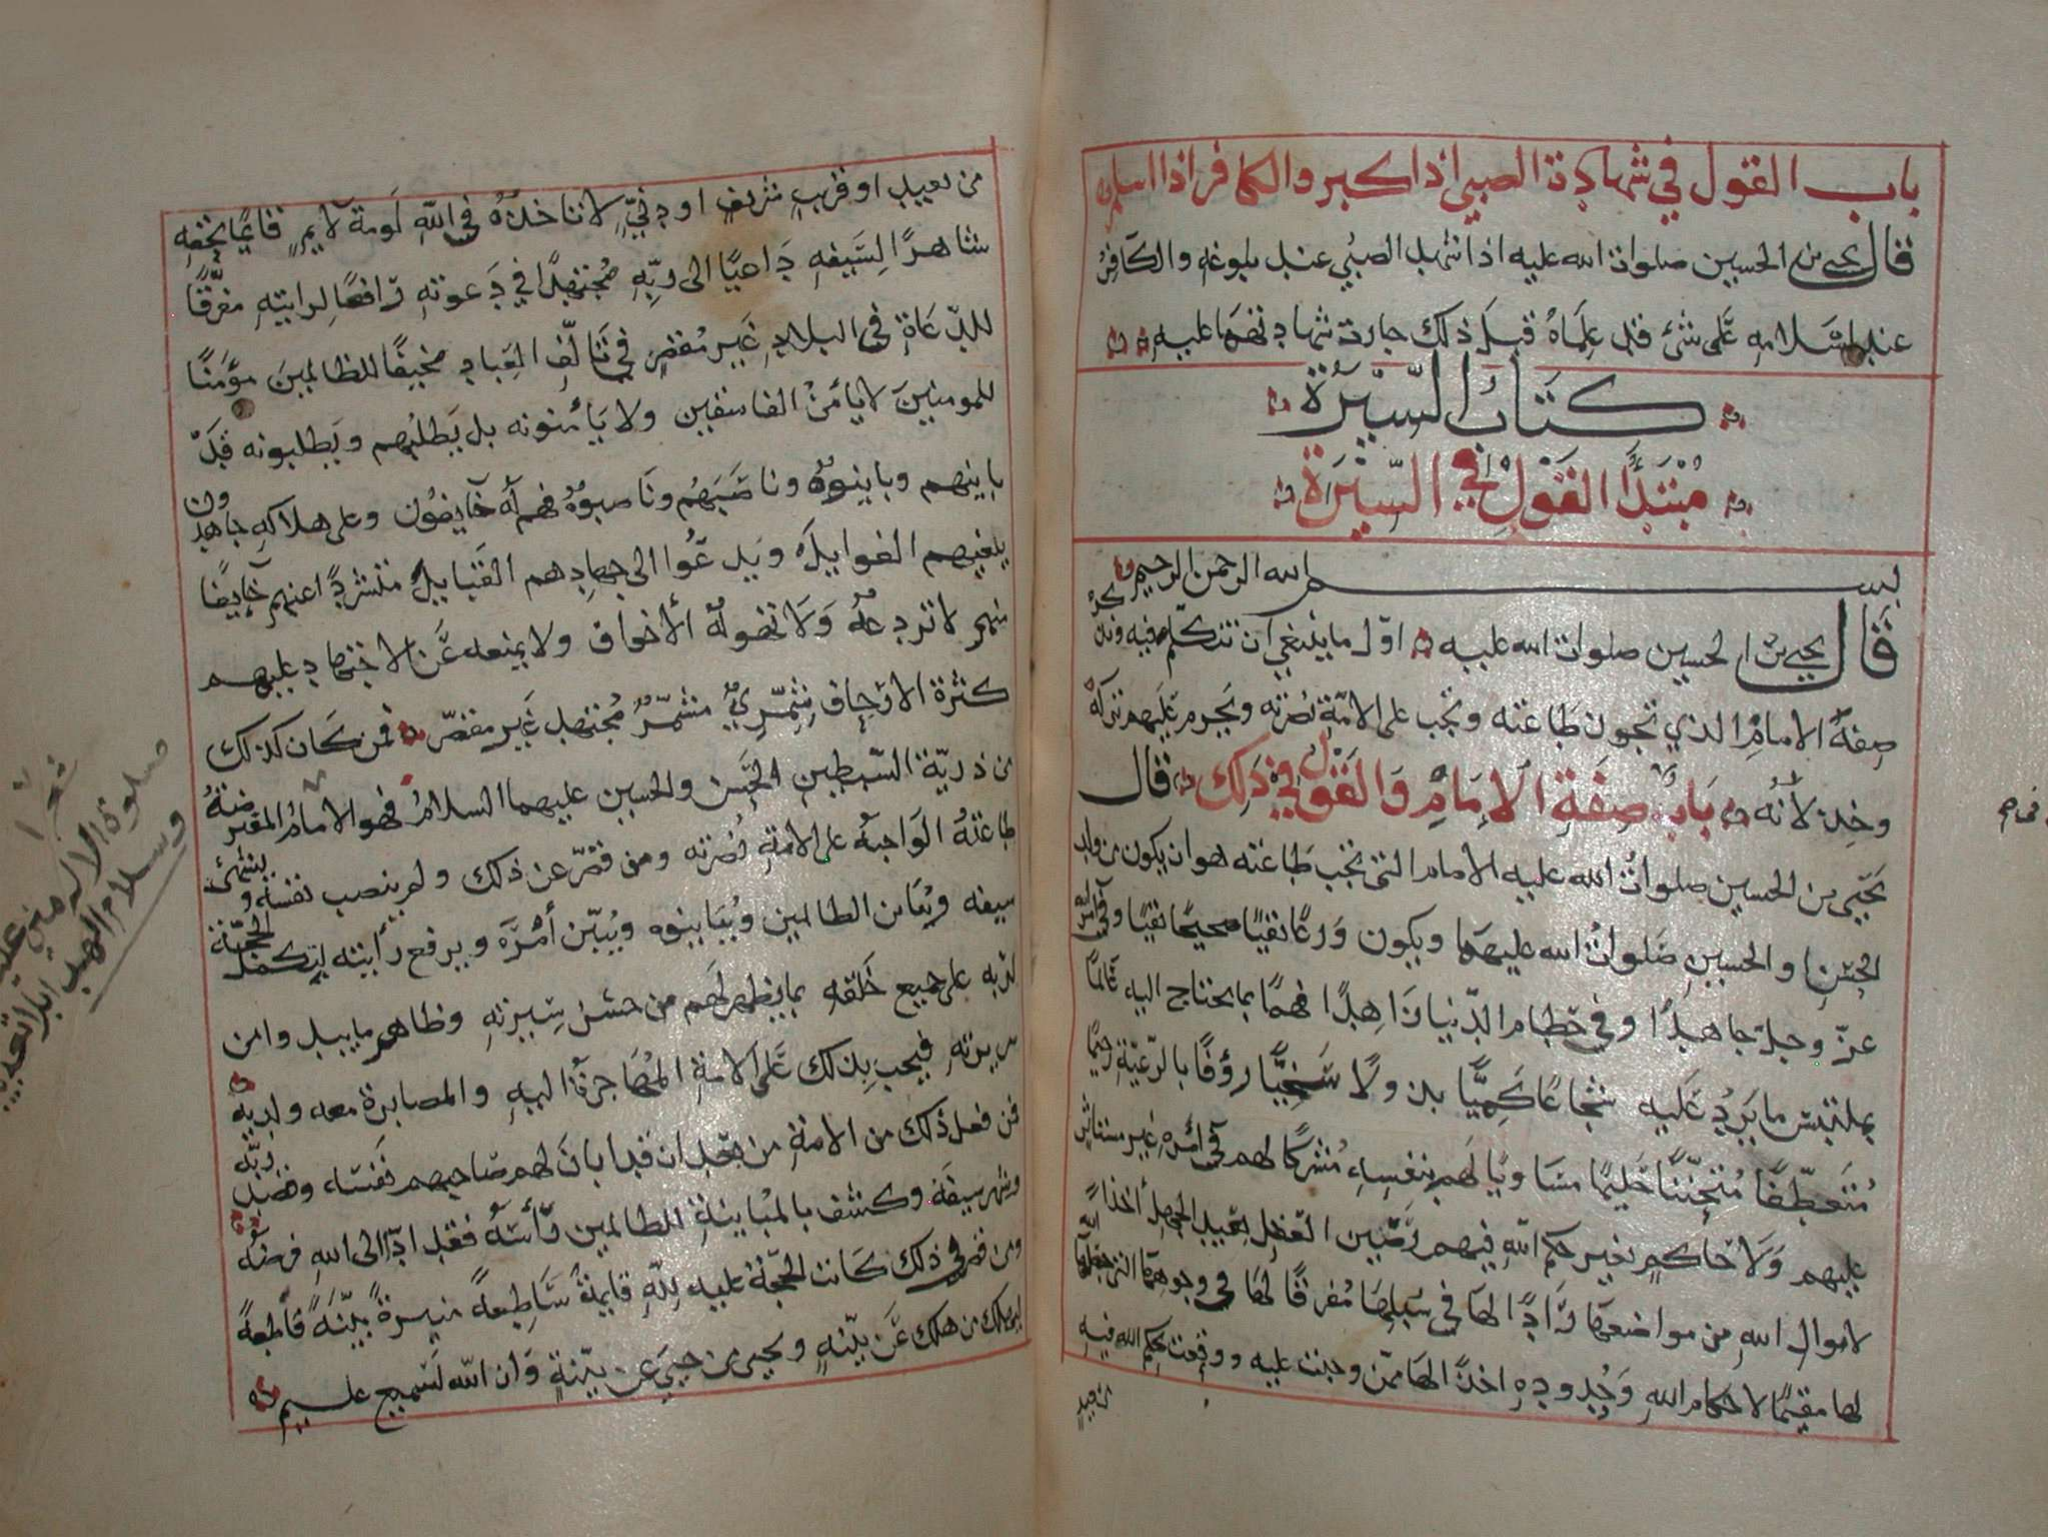 باب القول في شهادة الصبي اذا كبر والكافر اذا اسلم
قال يحيى بن الحسين صلوات الله عليه اذا شهد الصبي عند بلوغه والكافر
عند اسلامه على شئ قد علماه قبل ذلك جازت شهادتهما عليه
كتاب السيرة
مبتدأ القول في السيرة
بسم الله الرحمن الرحيم
قال يحيى بن الحسين صلوات الله عليه اول ما ينبغي ان نتكلم فيه
صفة الامام الذي تجب طاعته وتجب على الامة نصرته ويحرم عليهم تركه
وخذلانه باب صفة الامام والقول في ذلك قال
يحيى بن الحسين صلوات الله عليه الامام التي تجب طاعته هو ان يكون من ولد
الحسن والحسين صلوات الله عليهما ويكون ورعا تقيا صحيحا نقيا وفي امر الله
عز وجل جاهدا وفي حطام الدنيا زاهدا فهما بما يحتاج اليه عالما
بملتبس ما يرد عليه شجاعا كميا بذولا سخيا رؤفا بالرعية رحيما
متعطفا متحننا حليما مساويا لهم بنفسه مشركا لهم في امره غير مستأثر
عليهم ولا حاكم بغير حكم الله فيهم رصين العقل بعيد الجهل اخذا
لاموال الله من مواضعها رادا لها في سبلها مفرقا لها في وجوهها التي جعلها الله
لها مقيما لاحكام الله وحدوده اخذا لها ممن وجبت عليه ووقعت بحكم الله فيه
من بعيد
من بعيد او قريب شريف او دني لا تاخذه في الله لومة لايم قائما بحقه
شاهرا لسيفه داعيا الى ربه مجتهدا في دعوته رافعا لرايته مفرقا
للدعاة في البلاد غير مقصر في تالف العباد مخيفا للظالمين مؤمنا
للمومنين لا يأمن الفاسقين ولا يأمنونه بل يطلبهم ويطلبونه قد
باينهم وباينوه وناصبهم وناصبوه فهم له خايفون وعلى هلاكه جاهدون
يبغيهم الغوايل ويدعوا الى جهادهم القبايل متشردا عنهم خايفا
منهم لا تردعه ولا تهوله الأخواف ولا يمنعه عن الاجتهاد عليهم
كثرة الارجاف شمري مشمر مجتهد غير مقصر فمن كان كذلك
من ذرية السبطين الحسن والحسين عليهما السلام فهو الامام المفترضة
طاعته الواجبة على الامة نصرته ومن قصر عن ذلك ولم ينصب نفسه
سيفه ويباين الظالمين ويباينوه ويبين أمره ويرفع رأيته ليكمل الحجة
لربه على جميع خلقه بما يظهر لهم من حسن سيرته وظاهر ما يبدوا من
سريرته فيجب بذلك على الامة المهاجرة اليه والمصابرة معه ولديه
فمن فعل ذلك من الامة من بعد ان قد ابان لهم صاحبهم نفسه وقصد ربه
وشهر سيفه وكشف بالمباينة للظالمين رأسه فقد ادا الى الله فرضه
ومن قصر في ذلك كانت الحجة عليه لله قايمة ساطعة منيرة بينة قاطعة
ليهلك من هلك عن بينة ويحيى من حيي عن بينة وان الله لسميع عليم